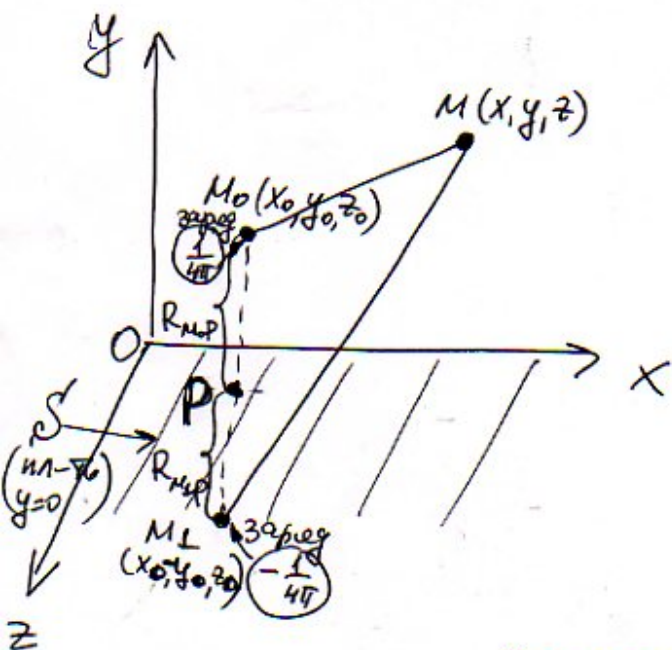 y
M(x,y,z)
M₀(x₀,y₀,z₀)
заряд
1/4π
R_M₀P
O
x
P
S
(пл-ть
y=0)
R_M₁P
M₁
(x₀,-y₀,z₀)
заряд
-1/4π
z